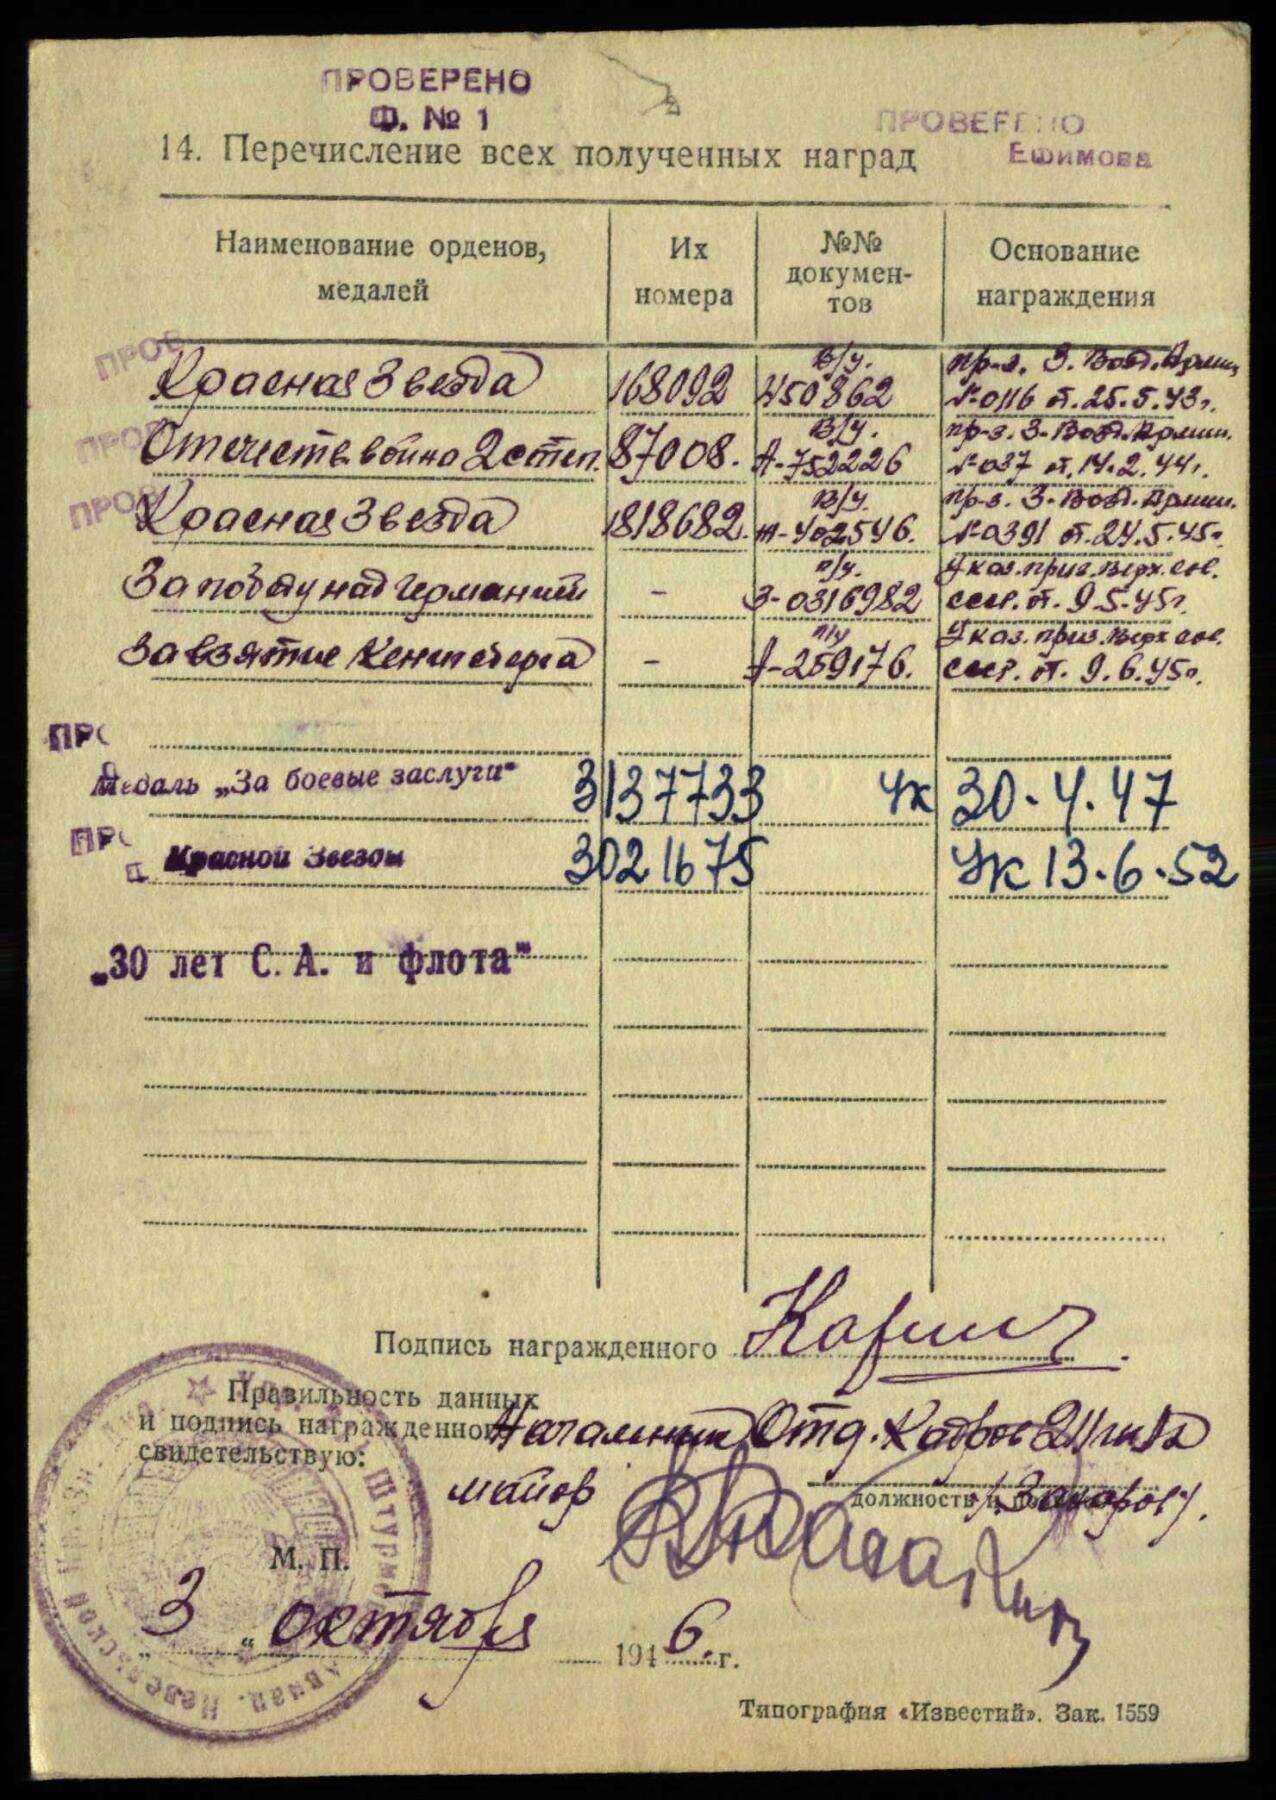 ПРОВЕРЕНО
Ф. № 1
ПРОВЕРЕНО
Ефимова
14. Перечисление всех полученных наград
Наименование орденов, медалей
Их номера
№№ докумен-тов
Основание награждения
ПРОВ
Красная Звезда 168092 В/у. 450862 пр-з. 3. Возд. Армии №0116 от. 25.5.43г.
ПРОВ
Отечеств. войно 2 степ. 87008. В/у. А-752226 пр-з. 3-Возд. Армии. №037 от. 14.2.44г.
ПРОВ
Красная Звезда 1818682. В/у. 402546. пр-з. 3-Возд. Армии. №0391 от. 24.5.45г
За победу над Германией - п/у. З-0316982 Указ. През. Верх. сов. ссср. от. 9.5.45г.
За взятие Кенигсберга - п/у А-259176. Указ. През. Верх сов. ссср. от. 9.6.45г.
ПРО
Медаль „За боевые заслуги" 3137733 Ук 30.4.47
ПРО
Красной Звезды 3021675 Ук 13.6.52
„30 лет С. А. и флота"
Подпись награжденного
Правильность данных
и подпись награжденного
свидетельствую:
Начальник Отд. Кадров
майор
должность и
/Захаров/.
М. П.
„3" октября 1946. г.
Типография «Известий». Зак. 1559